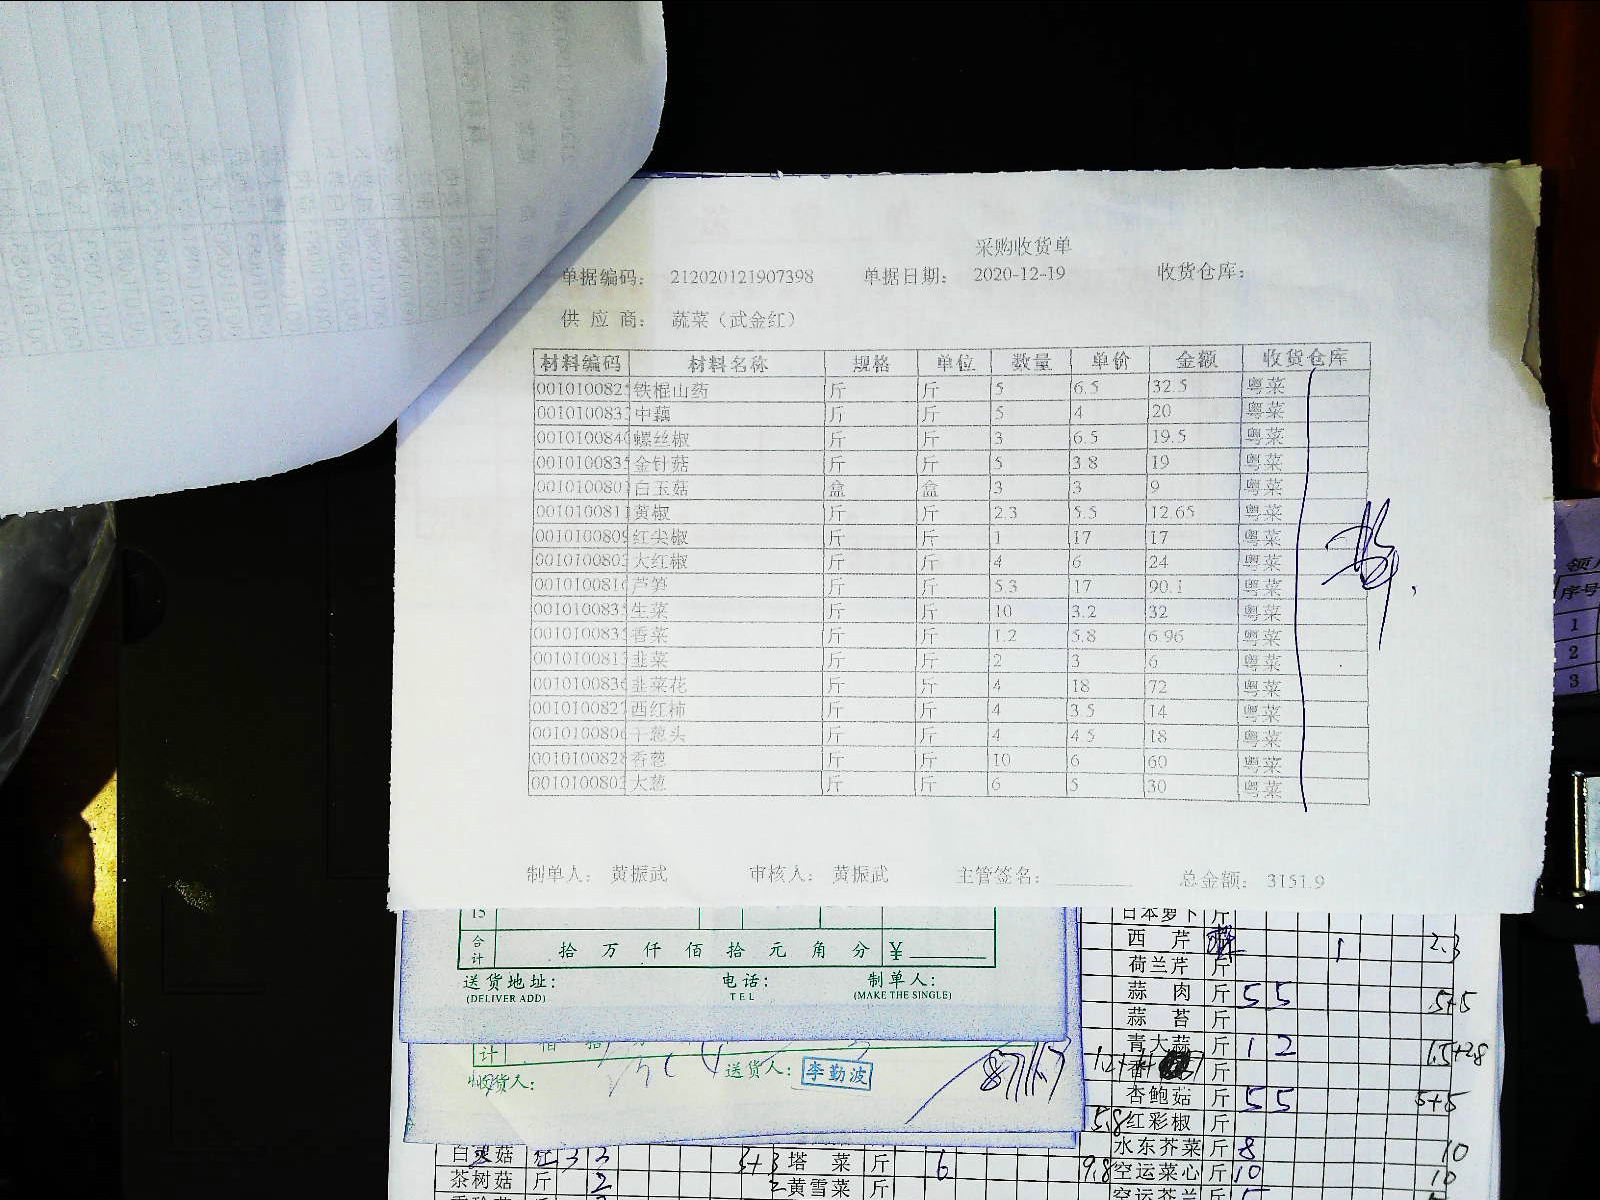 采购收货单
单据编码： 212020121907398 单据日期： 2020-12-19 收货仓库：
供 应 商： 蔬菜（武金红）
材料编码 材料名称 规格 单位 数量 单价 金额 收货仓库
001010082 铁棍山药 斤 斤 5 6.5 32.5 粤菜
001010083 中藕 斤 斤 5 4 20 粤菜
001010084 螺丝椒 斤 斤 3 6.5 19.5 粤菜
001010083 金针菇 斤 斤 5 3.8 19 粤菜
001010080 白玉菇 盒 盒 3 3 9 粤菜
001010081 黄椒 斤 斤 2.3 5.5 12.65 粤菜
001010080 红尖椒 斤 斤 1 17 17 粤菜
001010080 大红椒 斤 斤 4 6 24 粤菜
001010081 芦笋 斤 斤 5.3 17 90.1 粤菜
001010083 生菜 斤 斤 10 3.2 32 粤菜
001010083 香菜 斤 斤 1.2 5.8 6.96 粤菜
001010081 韭菜 斤 斤 2 3 6 粤菜
001010083 韭菜花 斤 斤 4 18 72 粤菜
001010082 西红柿 斤 斤 4 3.5 14 粤菜
001010080 干葱头 斤 斤 4 4.5 18 粤菜
001010082 香葱 斤 斤 10 6 60 粤菜
001010080 大葱 斤 斤 6 5 30 粤菜
制单人： 黄振武 审核人： 黄振武 主管签名： 总金额： 3151.9
序号
1
2
3
15
合计 拾 万 仟 佰 拾 元 角 分 ¥
送货地址： 电话： 制单人：
(DELIVER ADD) TEL (MAKE THE SINGLE)
计 佰 拾
收货人： 送货人： 李勤波
日本萝卜 斤
西 芹 1 2.3
荷兰芹 斤
蒜 肉 斤 5 5 5+5
蒜 苔 斤
青大蒜 斤 1 2
斤
杏鲍菇 斤 5 5 5+5
5.8 红彩椒 斤
水东芥菜 斤 8 10
9.8 空运菜心 斤 10 10
空运芥兰 斤
白玉菇 3 3 3+3 塔 菜 斤 6
茶树菇 斤 2 2 黄雪菜 斤